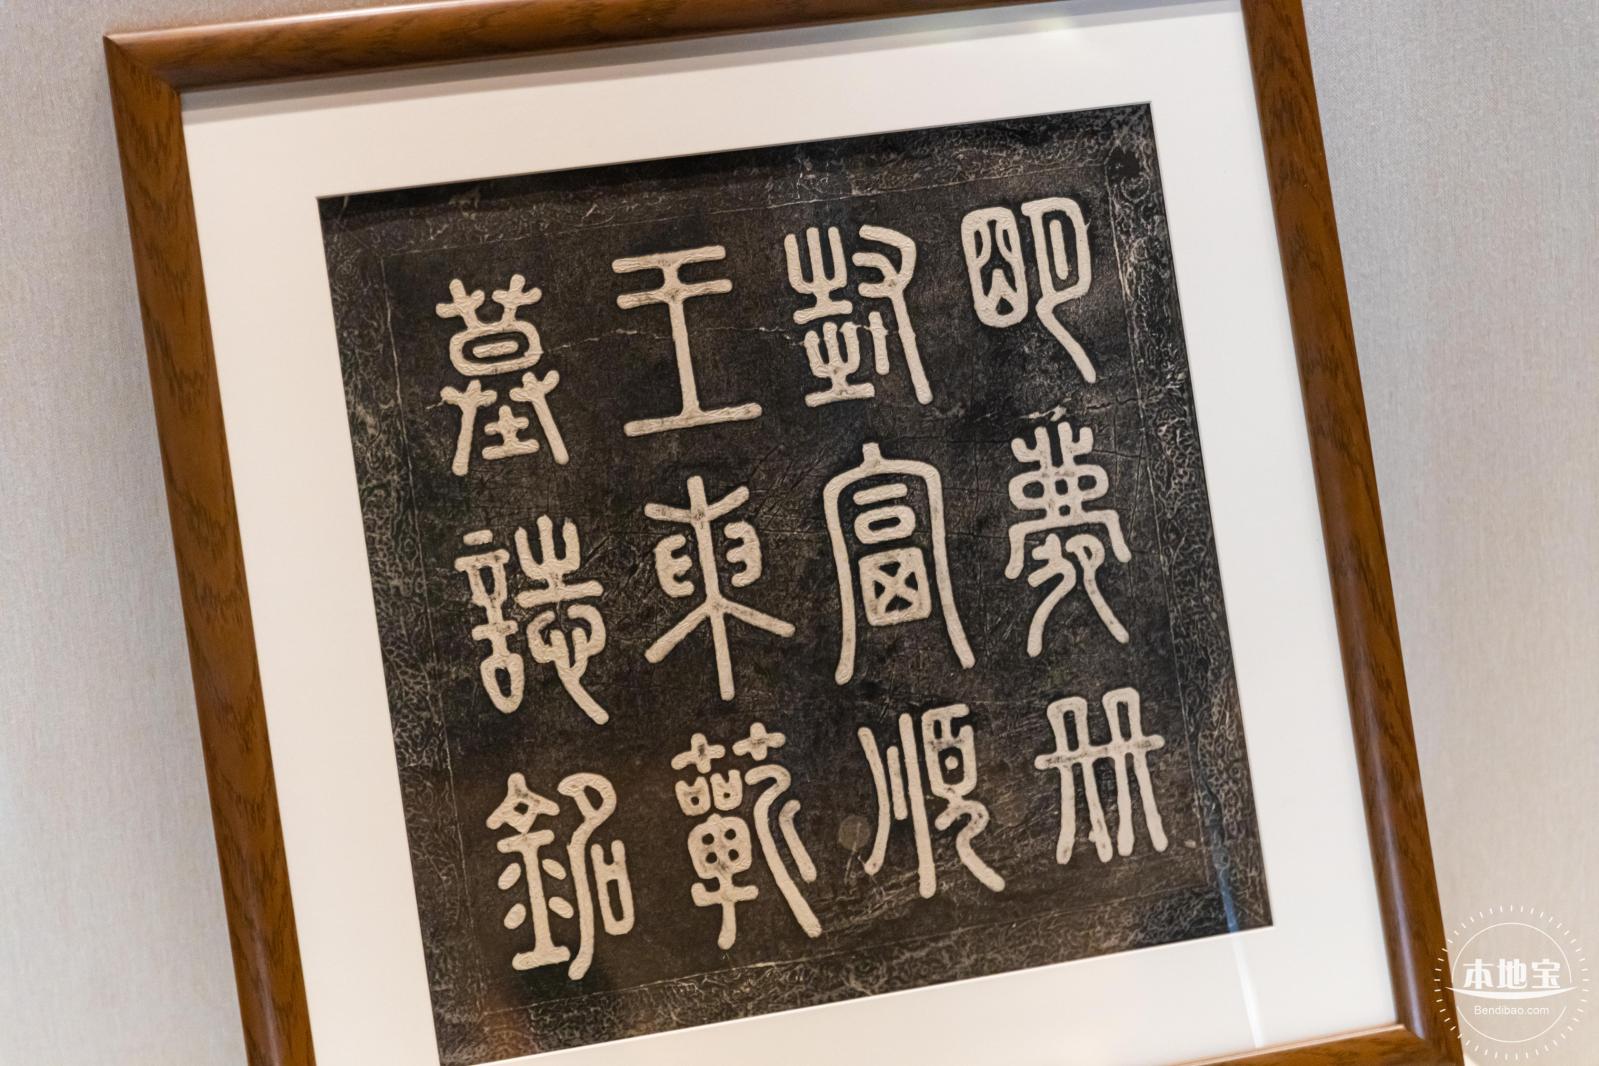 明薨册
封富順
王東蘄
墓誌銘
本地宝
Bendibao.com